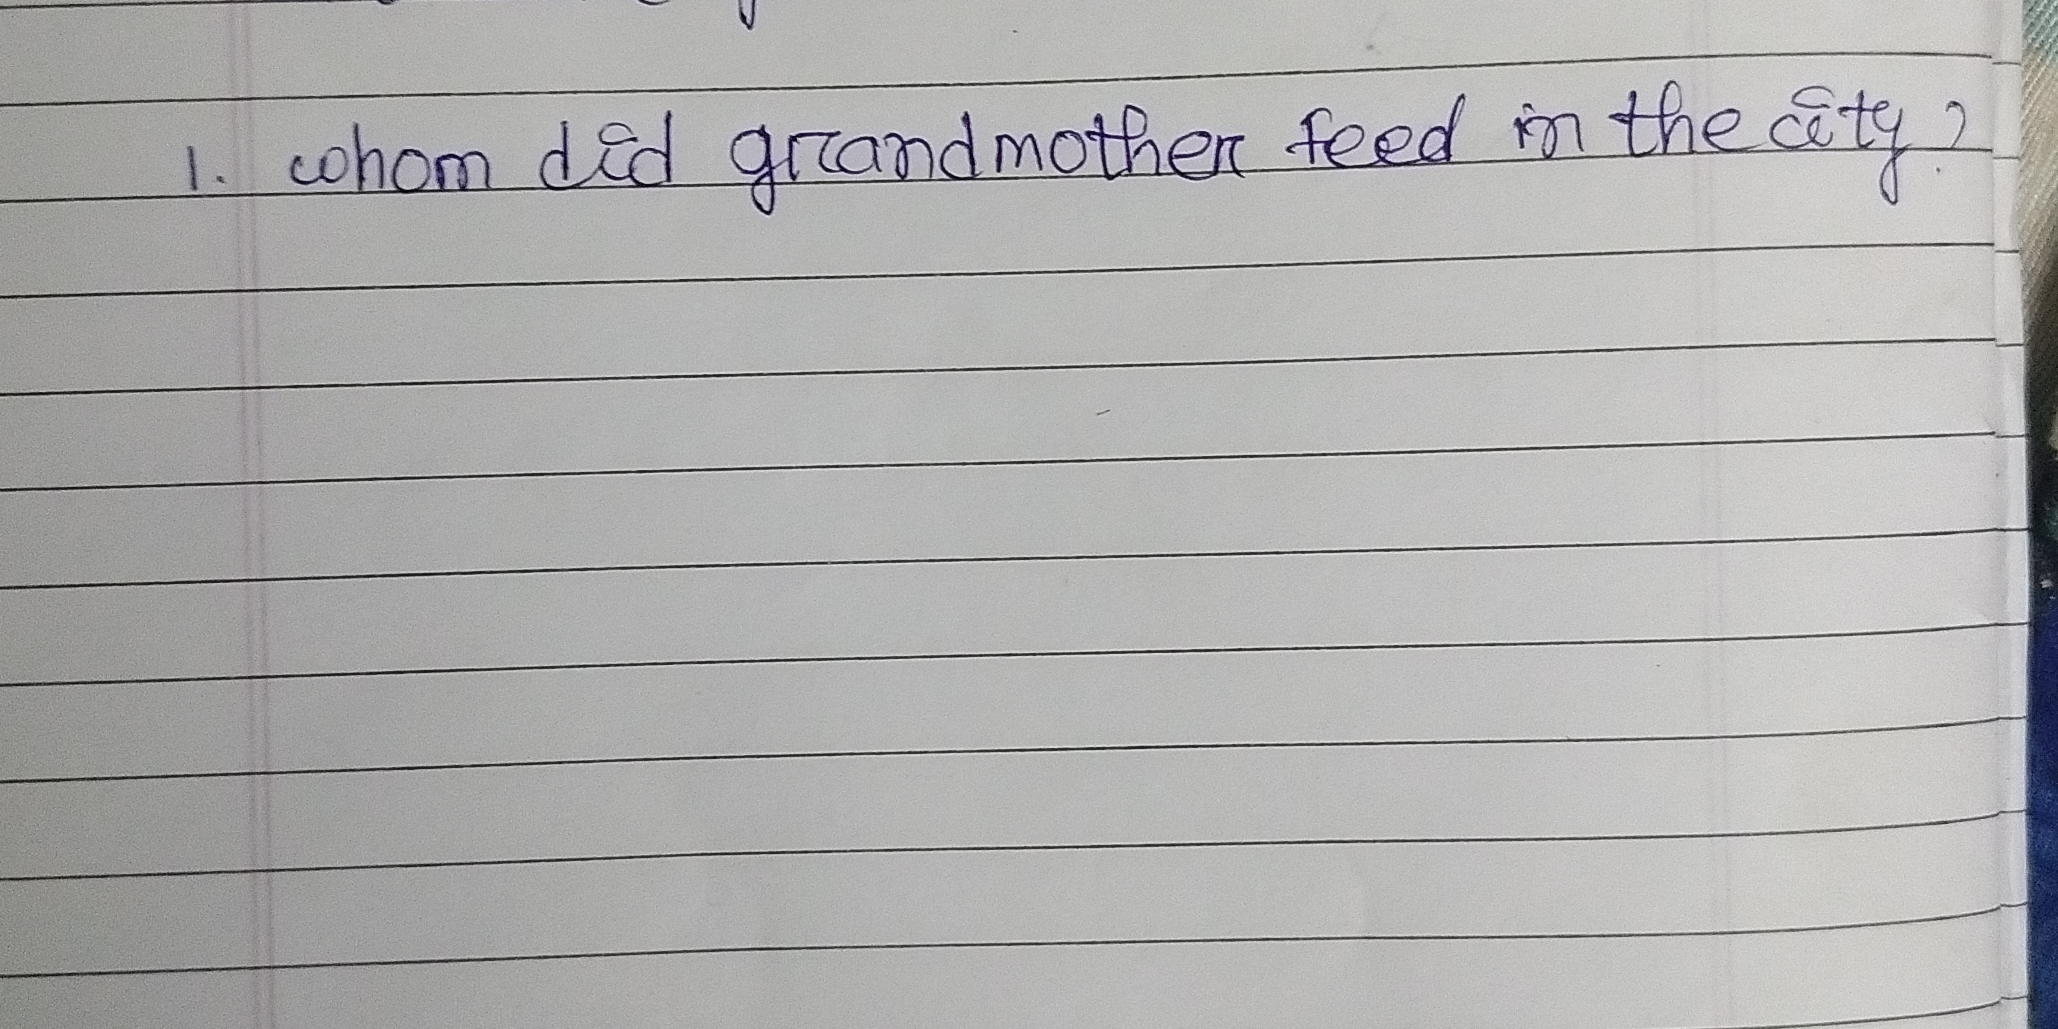 1. whom did grandmother feed in the city?